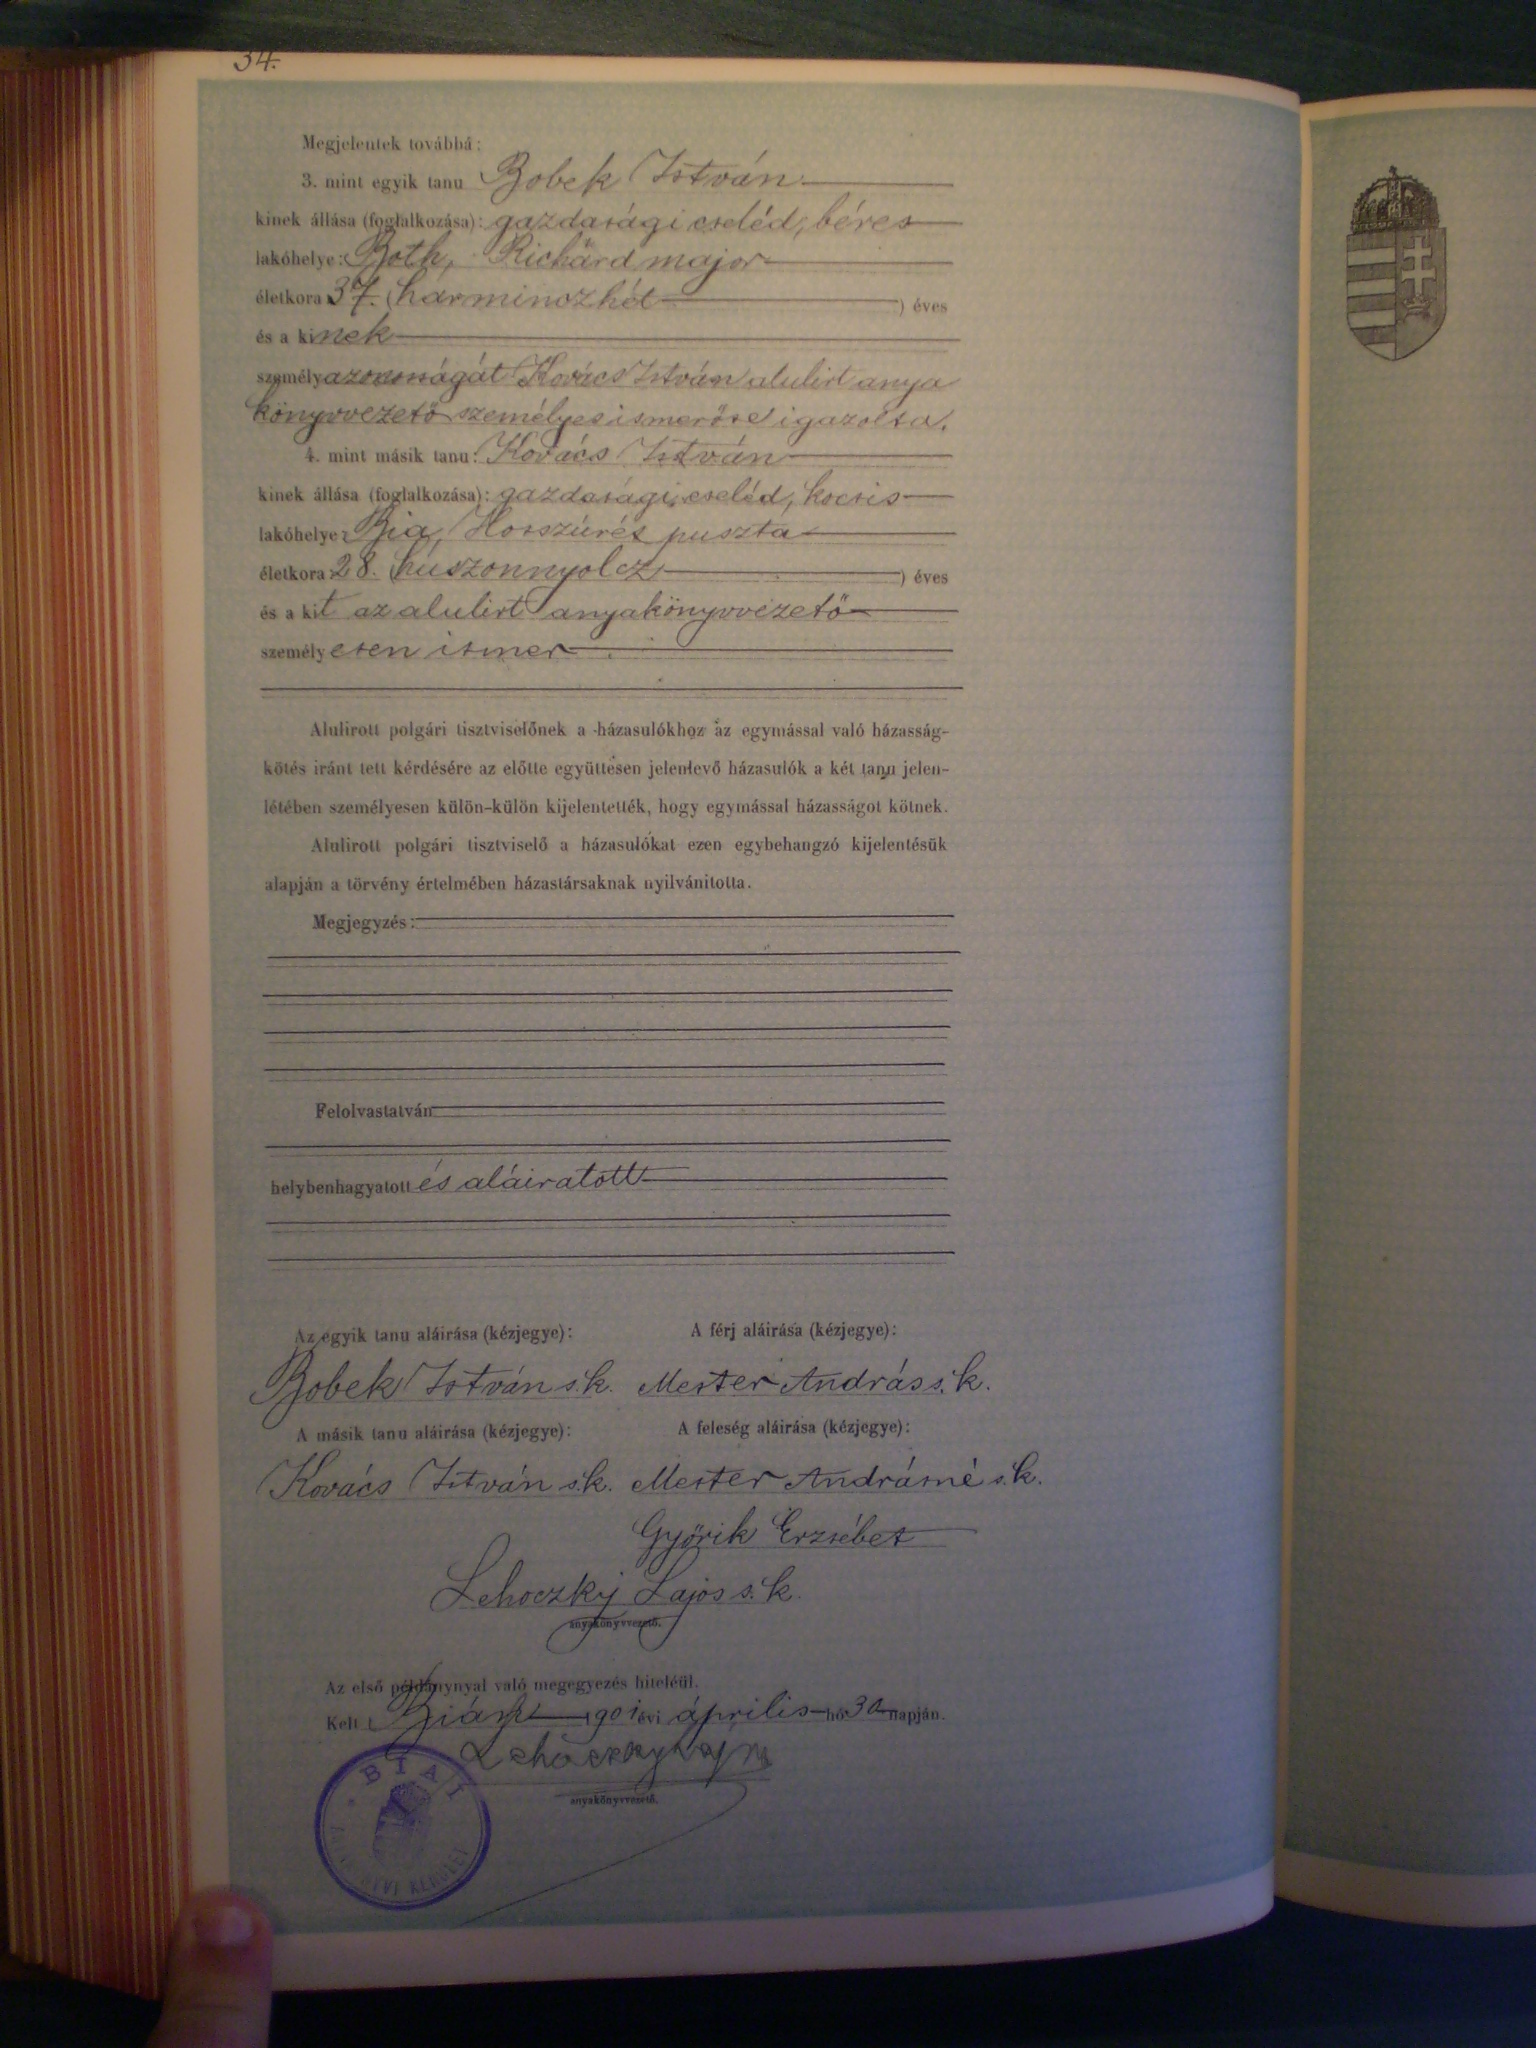 34.
Megjelentek továbbá:
3. mint egyik tanu Bobek István
kinek állása (foglalkozása): gazdasági cseléd, béres
lakóhelye: Both, Richárd major
életkora 37. (harmincz hét) éves
és a kinek
személyazonosságát Kovács István alulirt anya
könyvvezető személyes ismerőse igazolta.
4. mint másik tanu: Kovács István
kinek állása (foglalkozása): gazdasági cseléd, kocsis
lakóhelye: Bia, Hosszúrét puszta
életkora 28. (húszonnyolcz) éves
és a kit az alulirt anyakönyvvezető
személyesen ismer
Alulirott polgári tisztviselőnek a házasulókhoz az egymással való házasság-
kötés iránt tett kérdésére az előtte együttesen jelenlevő házasulók a két tanu jelen-
létében személyesen külön-külön kijelentették, hogy egymással házasságot kötnek.
Alulirott polgári tisztviselő a házasulókat ezen egybehangzó kijelentésük
alapján a törvény értelmében házastársaknak nyilvánitotta.
Megjegyzés:
Felolvastatván
helybenhagyatott és aláiratott
Az egyik tanu aláirása (kézjegye): A férj aláirása (kézjegye):
Bobek István s.k. Mester András s.k.
A másik tanu aláirása (kézjegye): A feleség aláirása (kézjegye):
Kovács István s.k. Mester Andrásné s.k.
Győrik Erzsébet
Lehoczky Lajos s.k.
anyakönyvvezető.
Az első példánynyal való megegyezés hiteléül.
Kelt Bián 1901 évi április hó 30 napján.
Lehoczky Lajos
anyakönyvvezető.
BIAI
KERÜLET